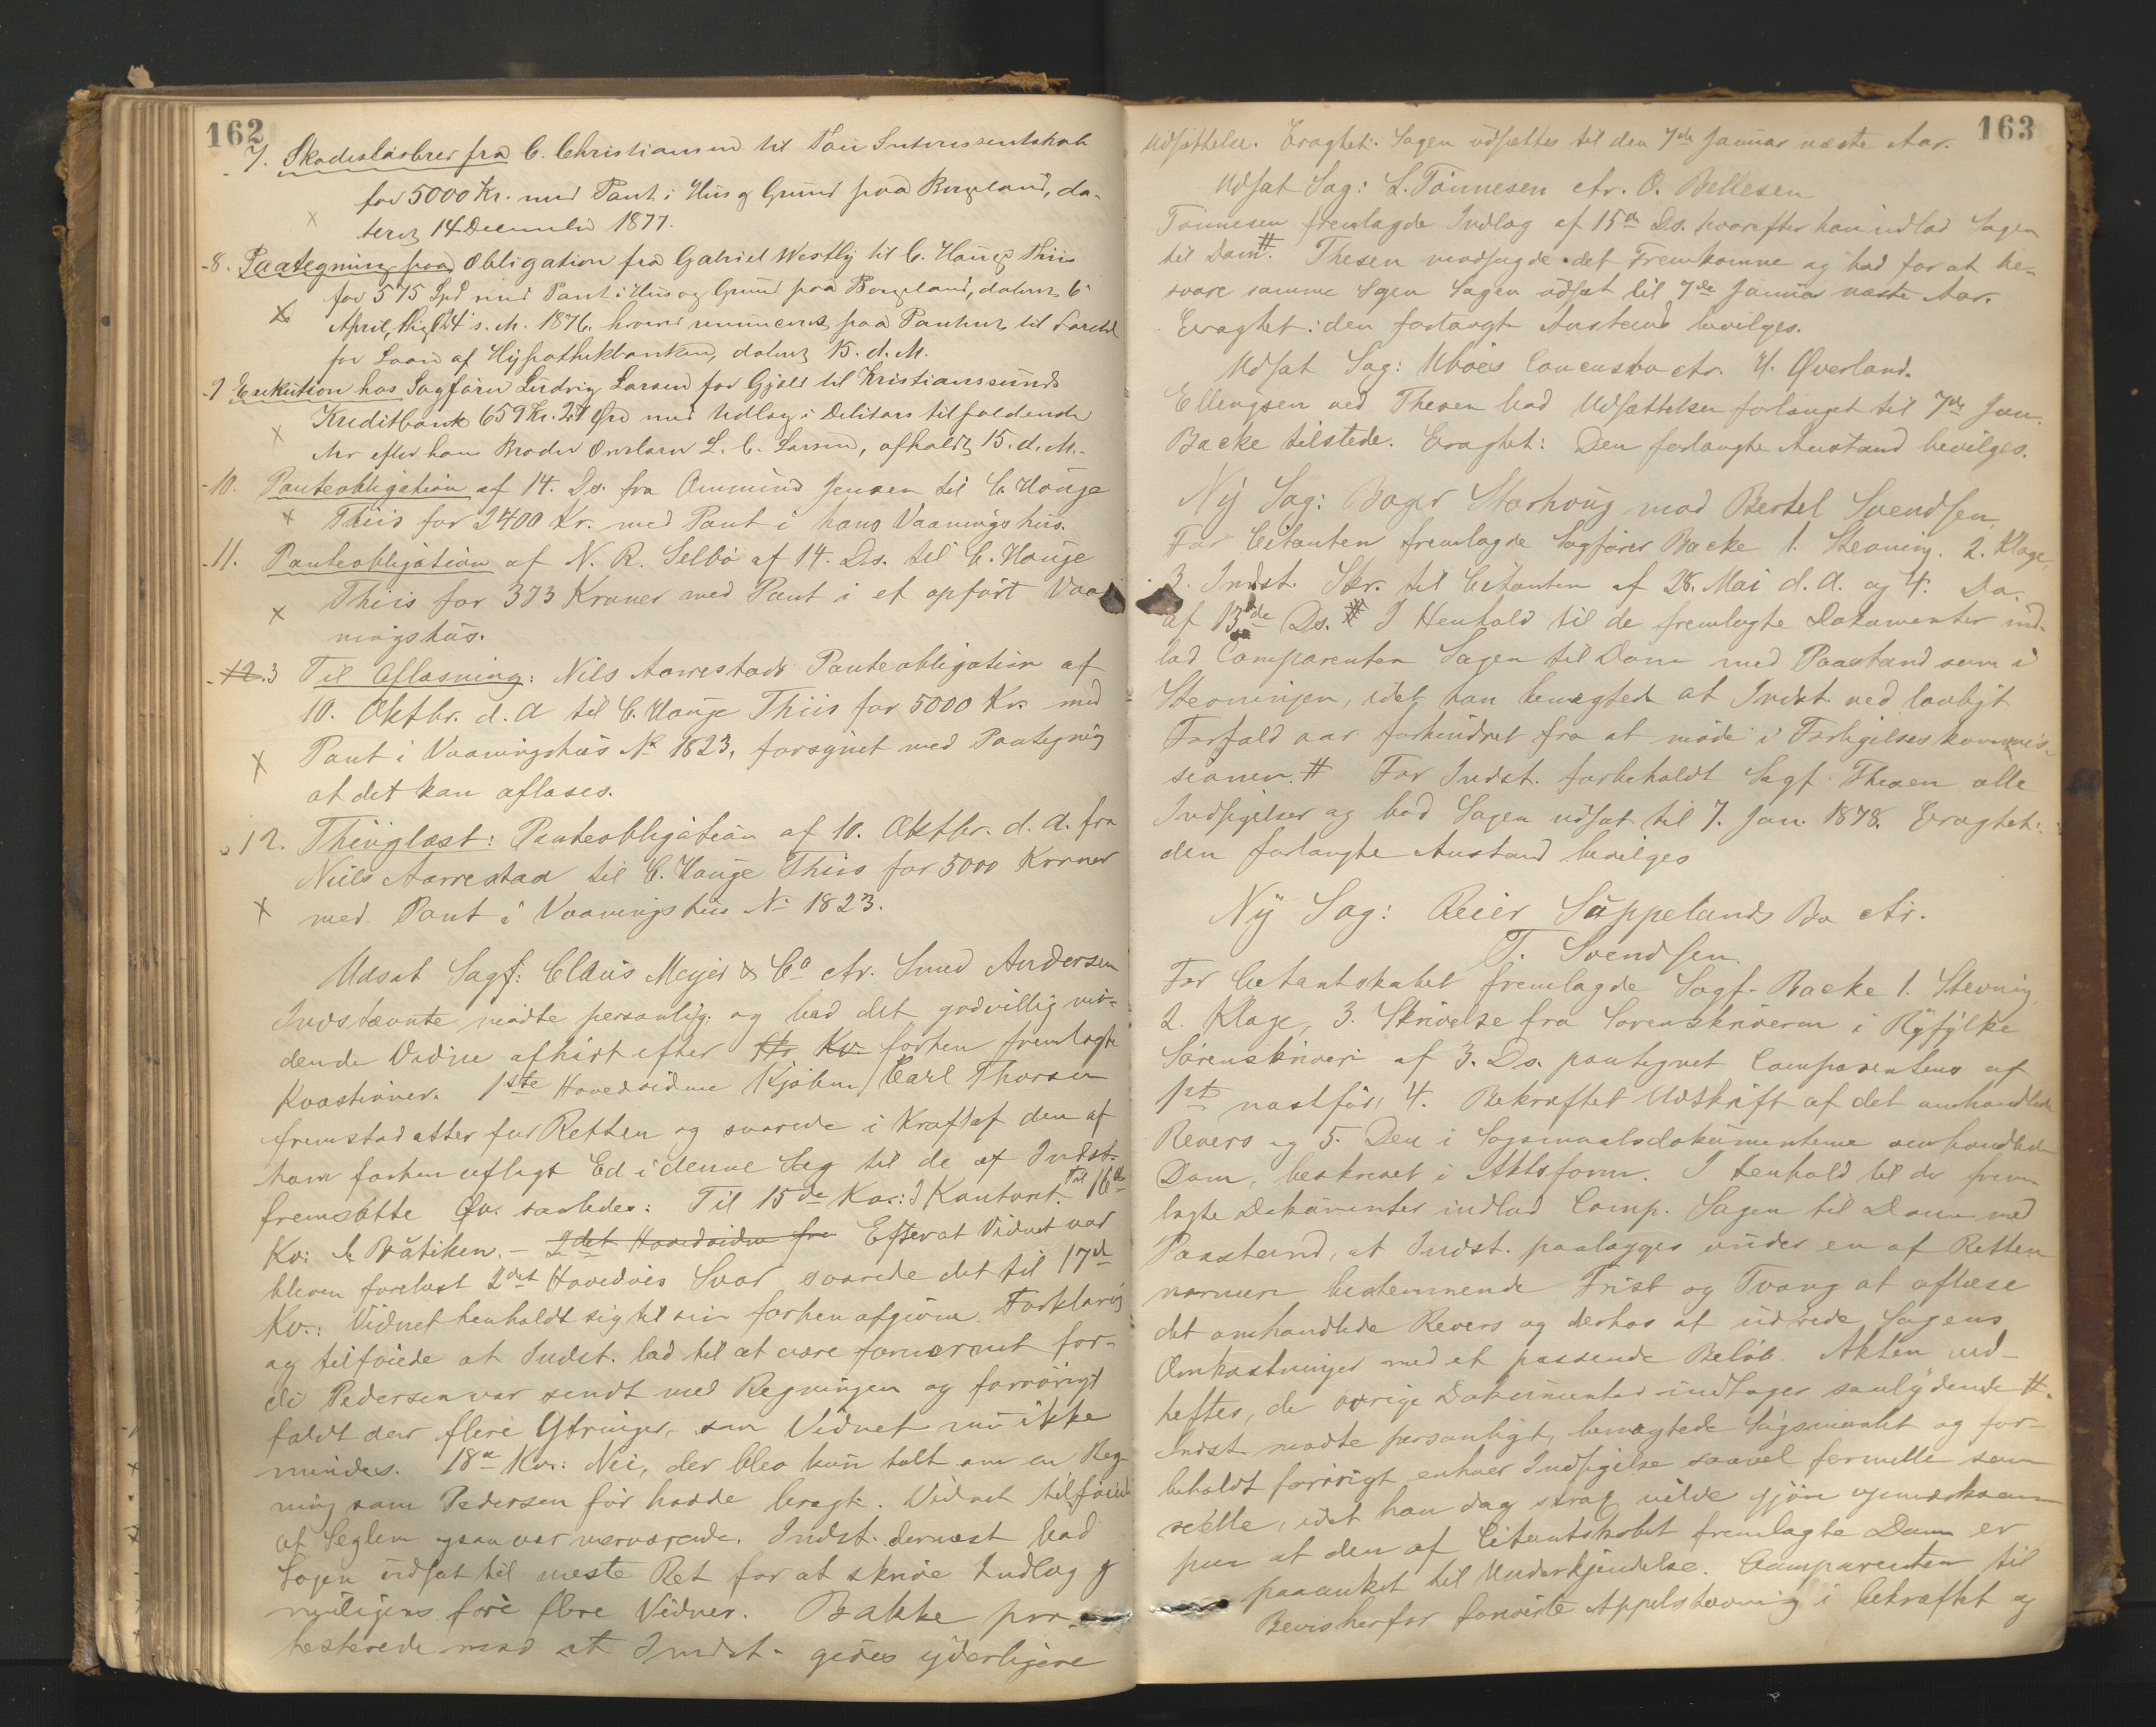 162
7. Skadesløsbrev fra C. Christiansen til Tou Interessentskab
for 5000 Kr. med Pant i Hus og Grund paa Bergeland, da-
teret 14 December 1877.
8. Paategning paa Obligation fra Gabriel Westly til C. Hauge Thiis
for 575 Spd med Pant i Hus og Grund paa Bergeland, dateret 6
April, thgl 24 s. M. 1876, hvorved paa Pantet til
for Laan af Hypothekbanken, dateret 15. d. M.
9 Exekution hos Sagfører Ludvig Larsen for Gjæld til Kristianssunds
Kreditbank 659 Kr. 27 Øre med Udlæg i Debitors tilfaldende
Arv efter hans Broder L. C. Larsen, afholdt 15. d. M.
10. Panteobligation af 14. Ds. fra Ommund Jensen til C. Hauge
Thiis for 2400 Kr. med Pant i hans Vaaningshus.
11. Panteobligation af N. R. Selbø af 14. Ds. til C. Hauge
Thiis for 373 Kroner med Pant i et opført Vaa-
ningshus.
12.3 Til Aflæsning: Nils Aarrestads Panteobligation af
10. Oktbr. d. A til C. Hauge Thiis for 5000 Kr. med
Pant i Vaaningshus No 1823, forsynet med Paategning
at det kan aflæses.
12. Thinglæst: Panteobligation af 10. Oktbr. d. A. fra
Niels Aarrestad til C. Hauge Thiis for 5000 Kroner
med Pant i Vaaningshus No 1823.
Udsat Sagf: Claus Meyer & Co ctr. Smed Andersen
Indstævnte mødte personlig og bad det godvillig mø-
dende Vidne afhørt efter Kv. forhen fremlagte
Kvæstioner. 1ste Hovedvidne Kjøbm/ Carl Thorsen
fremstod atter for Retten og svarede i Kraft af den af
ham forhen aflagt Ed i denne Sag til de af Indst.
fremsatte Qv. saaledes: Til 15de Kv.: I Kontoret. Til 16de
Kv: I Butiken. – 2det Hovedvidne fre Efterat Vidnet var
bleven forelæst 2det Hovedvis Svar svarede det til 17de
Kv.: Vidnet henholdt sig til sin forhen afgivne Forklaring
og tilføiede at Indst. lod til at være fornærmet for-
di Pedersen var sendt med Regningen og forøvrigt
faldt der flere Ytringer, som Vidnet nu ikke
mindes. 18de Kv.: Nei, der blev kun talt om en Reg-
ning som Pedersen før havde bragt. Vidnet tilføiede
at Seglem ogsaa var nærværende. Indst. dernæst bad
Sagen udsat til næste Ret for at skrive Indlæg og
muligens føre flere Vidner. Bakke pro-
testerede mod at Indst. gives yderligere
163
Udsættelse. Eragtet: Sagen udsættes til den 7de Januar næste Aar.
Udsat Sag: L. Tønnesen ctr. O. Bellesen
Tønnesen fremlagde Indlæg af 15de Ds. hvorefter han indlod Sagen
til Dom #. Thesen modsagde det Fremkomne og bad for at be-
svare samme Sagen udsat til 7de Januar næste Aar.
Eragtet: den forlangte Anstand bevilges.
Udsat Sag: Ubøes Concursbo ctr. H. Qverland.
Ellengsen ved Thesen bad Udsættelsen forlænget til 7de Jan.
Backe tilstede. Eragtet: Den forlangte Anstand bevilges.
Ny Sag: Bager Storhoug mod Bertel Svendsen
For Citanten fremlagde Sagfører Backe 1. Stevning. 2. Klage,
3. Indst. Skr. til Citanten af 28. Mai d. A. og 4. Do.
af 13de Ds. # I Henhold til de fremlagte Dokumenter ind-
lod Comparenten Sagen til Dom med Paastand som i
Stevningen, idet han benægtede at Indst. ved lovligt
Forfald var forhindret fra at møde i Forligelseskommis-
sionen. # For Indst. forbeholdt Sagf. Thesen alle
Indsigelser og bad Sagen udsat til 7. Jan. 1878. Eragtet:
den forlangte Anstand bevilges
Ny Sag: Reier Suppelands Bo ctr.
T. Svendsen.
For Citantskabet fremlagde Sagf. Backe 1. Stevning,
2. Klage, 3. Skrivelse fra Sorenskriveren i Ryfylke
Sorenskriveri af 3. Ds. paategnet Comparentens af
1st næstfør, 4. Bekræftet Udskrift af det omhandlede
Revers og 5. Den i Søgsmaalsdokumenterne omhandlede
Dom, beskrevet i Aktsform. I Henhold til de frem-
lagte Dokumenter indlod Comp. Sagen til Dom med
Paastand, at Indst. paalægges under en af Retten
nærmere bestemmende Frist og Tvang at aflæse
det omhandlede Revers og derhos at udrede Sagens
Omkostninger med et passende Beløb. Akten ved-
heftes, de øvrige Dokumenter indtages saalydende #.
Indst. mødte personligt, benægtede Søgsmaalet og for-
beholdt forøvrigt enhver Indsigelse saavel formelle som
reelle, idet han dog strax vilde gjøre opmærksom
paa at den af Citantskabet fremlagte Dom er
paaanket til Underkjendelse. Comparenten til
Bevis herfor foreviste Appelstævning i bekræftet og